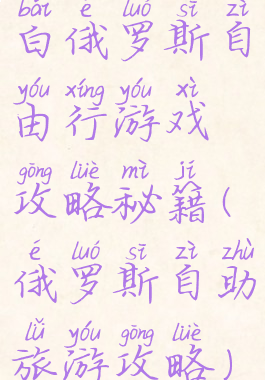 bái é luó sī zì
白俄罗斯自
yóu xíng yóu xì
由行游戏
gōng lüè mì jí
攻略秘籍(
é luó sī zì zhù
俄罗斯自助
lǚ yóu gōng lüè
旅游攻略)